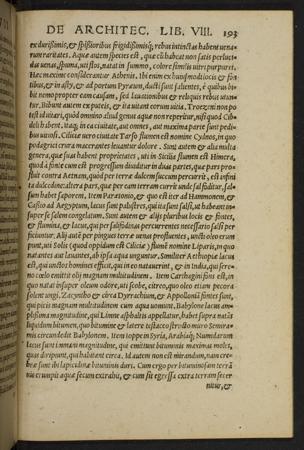 DE ARCHITEC. LIB. VIII. 193
ex durissimis, & spissioribus frigidissimisq; rebus intinctas habent uena-
rum raritates. Aquæ autem species est, quæ cũ habeat non satis perluci-
das uenas, spuma, uti flos, natat in summo, colore similis uitri purpurei.
Hæc maxime considerantur Athenis. Ibi enim ex huiusmodi locis & fon-
tibus, & in asty, & ad portum Pyræum, ducti sunt salientes, è quibus bi-
bit nemo propter eam causam, sed lauationibus & reliquis rebus utun-
tur, Bibunt autem ex puteis, & ita uitant eorum uitia. Trœzeni non po
test id uitari, quòd omnino aliud genus aquæ non reperitur, nisi quod Cib-
deli habent. itaq; in ea ciuitate, aut omnes, aut maxima parte sunt pedi-
bus uitiosi. Ciliciæ uero ciuitate Tarso flumen est nomine Cydnos, in quo
podagrici crura macerantes leuantur dolore. Sunt autem & alia multa
genera, quæ suas habent proprietates, uti in Sicilia flumen est Himera,
quod à fonte cum est progressum diuiditur in duas partes, quæ pars pro-
fluit contra Aetnam, quod per terræ dulcem succum percurrit, est infini
ta dulcedine: altera pars, quæ per eam terram currit unde sal foditur, sal-
sum habet saporem, Item Parætonio, & quo est iter ad Hammonem, &
Casio ad Aegyptum, lacus sunt palustres, qui ita sunt salsi, ut habeant in-
super se salem congelatum. Sunt autem & alijs pluribus locis & fontes,
& flumina, & lacus, qui per salifodinas percurrentes necessario salsi per
ficiuntur. Alij autẽ per pingues terræ uenas profluentes, uncti oleo erum
punt, uti Solis (quod oppidum est Ciliciæ) flumẽ nomine Liparis, in quo
natantes aut lauantes, ab ipsa aqua unguntur. Similiter Aethiopiæ lacus
est, qui unctos homines efficit, qui in eo natauerint, & in India, qui sere-
no cœlo emittit olei magnam multitudinem. Item Carthagini fons est, in
quo natat insuper oleum odore, uti scobe, citreo, quo oleo etiam pecora
solent ungi. Zacyntho & circa Dyrrachium, & Apolloniã fontes sunt,
qui picis magnam multitudinem cum aqua uomunt. Babylone lacus am-
plissima magnitudine, qui Limne asphaltis appellatur, habet supra natãs
liquidum bitumen, quo bitumine & latere testaceo structũ muro Semira-
mis circundedit Babylonem. Item ioppe in Syria, Arabiaq; Numidarum
lacus sunt immani magnitudine, qui emittunt bituminis maximas moles,
quas diripiunt, qui habitant circa. Id autem non est mirandum, nam cre-
bræ sunt ibi lapicedinæ bituminis duri. Cum ergo per bituminosam terrã
uis erumpit aquæ secum extrahit, & cum sit egressa extra terram secer
nitur, &